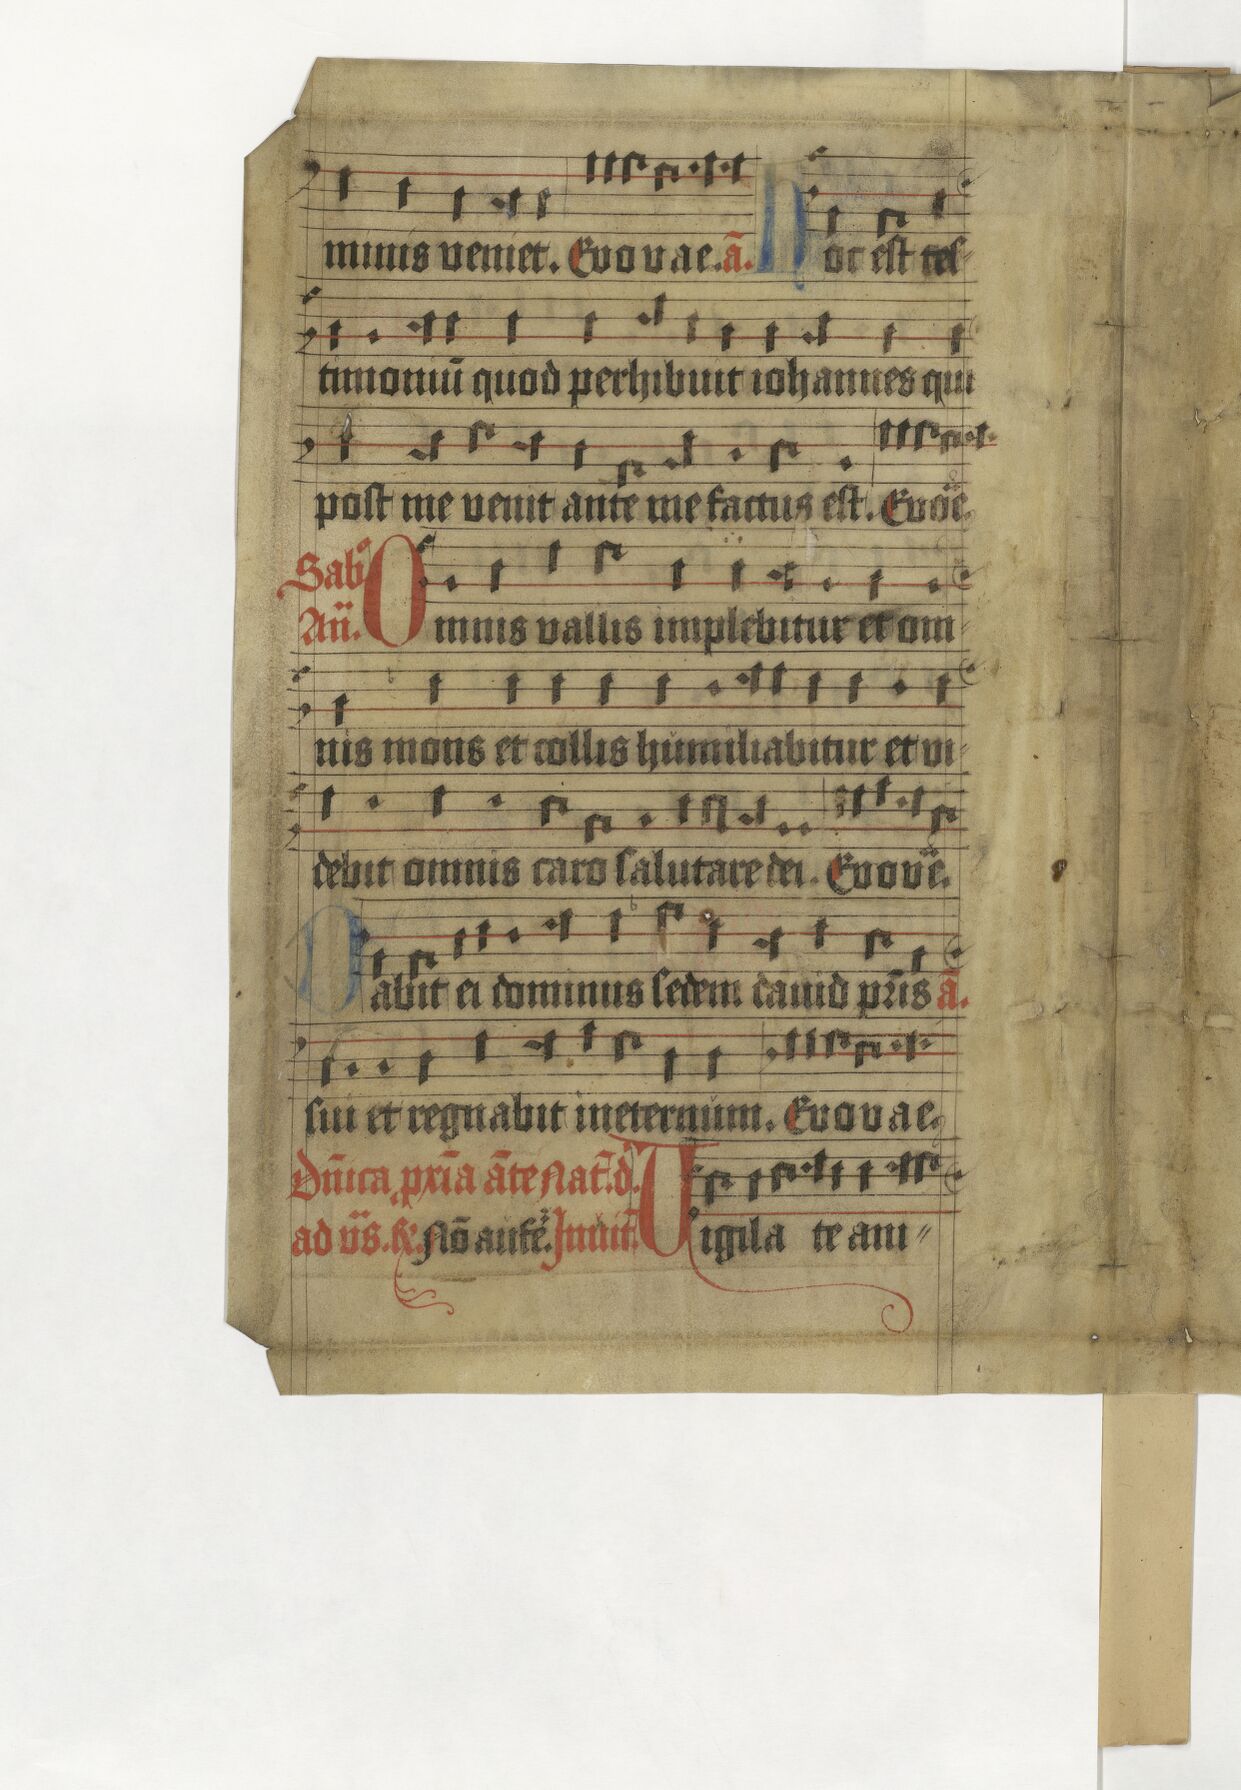 minis veniet. Evovae. ā. Hoc est tes-
timoniū quod perhibuit iohannes qui
post me venit ante me factus est. Evoe.
Sabbo
An. Omnis vallis implebitur et om-
nis mons et collis humiliabitur et vi-
debit omnis caro salutare dei. Evove.
Dabit ei dominus sedem david pr̄is ā.
sui et regnabit in eternum. Evovae.
Dn̄ica pxīa āte Nat. d.
ad vs. R. Nō aufe. Invit. Vigilate ani-